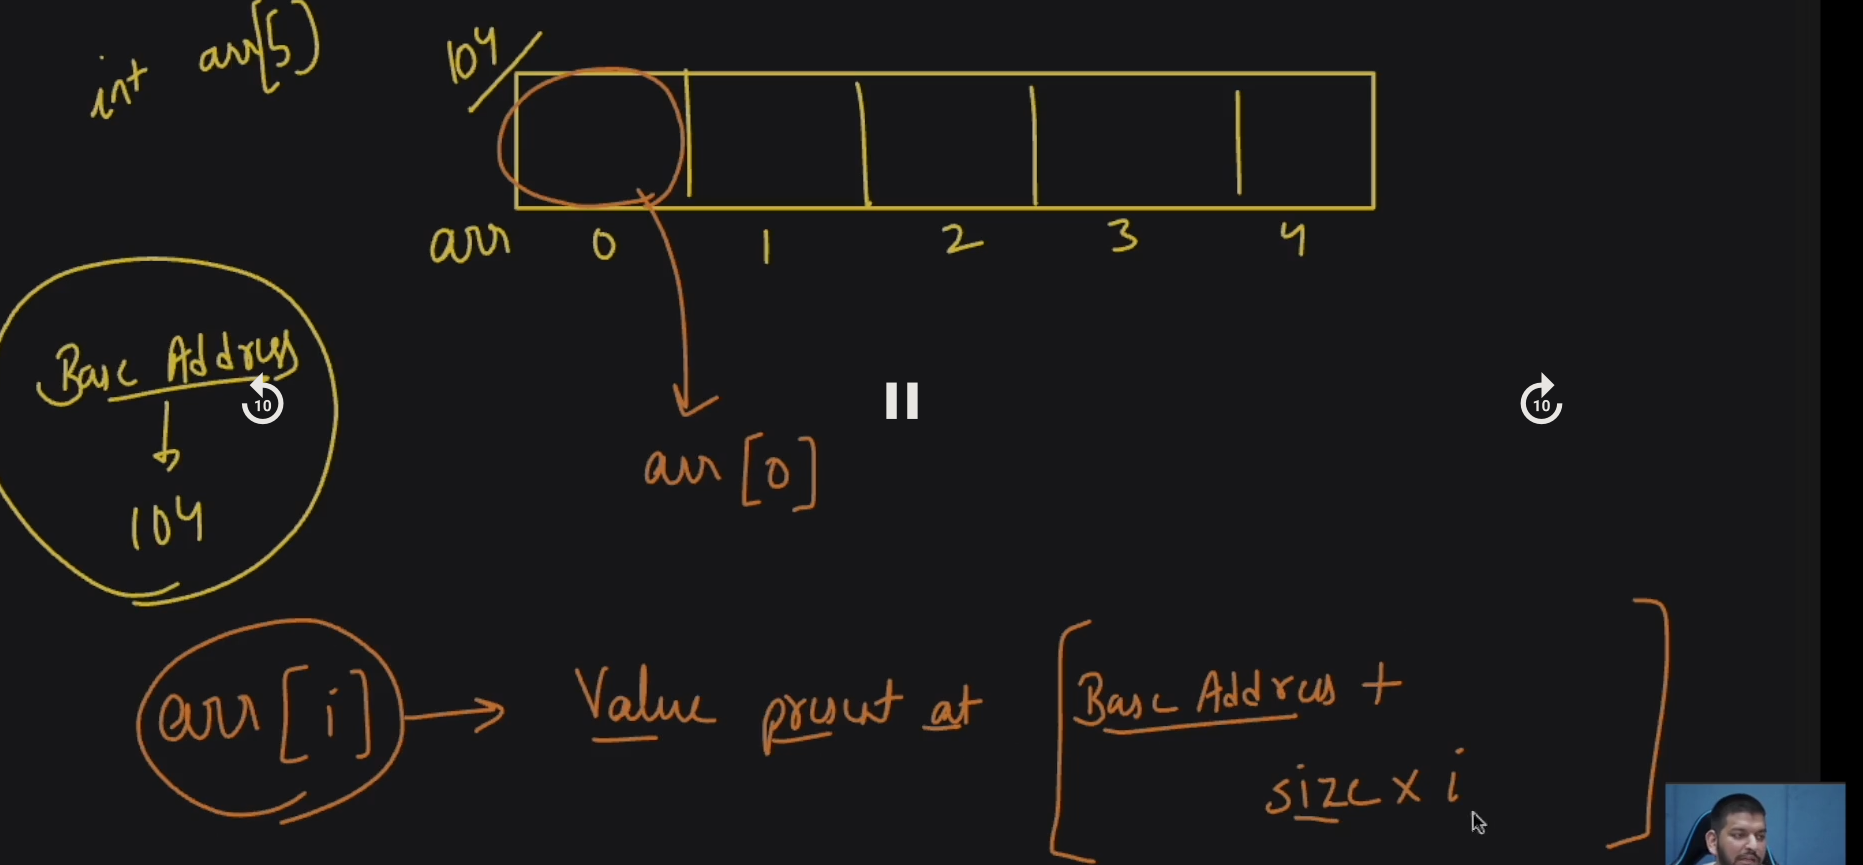 int arr[5]
104
arr 0 1 2 3 4
Base Address
104
10
10
arr[0]
arr[i] → Value present at [Base Address +
size x i]